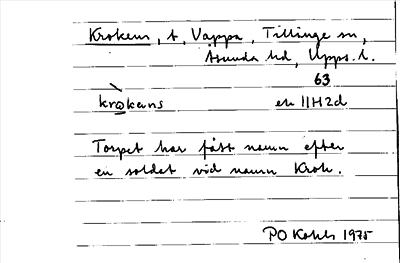 Krokens, t, Vappa, Tillinge sn,
Åsunda hd, Upps. l.
63
krokens ek 11H2d
Torpet har fått namn efter
en soldat vid namn Krok.
PO Kohls 1975